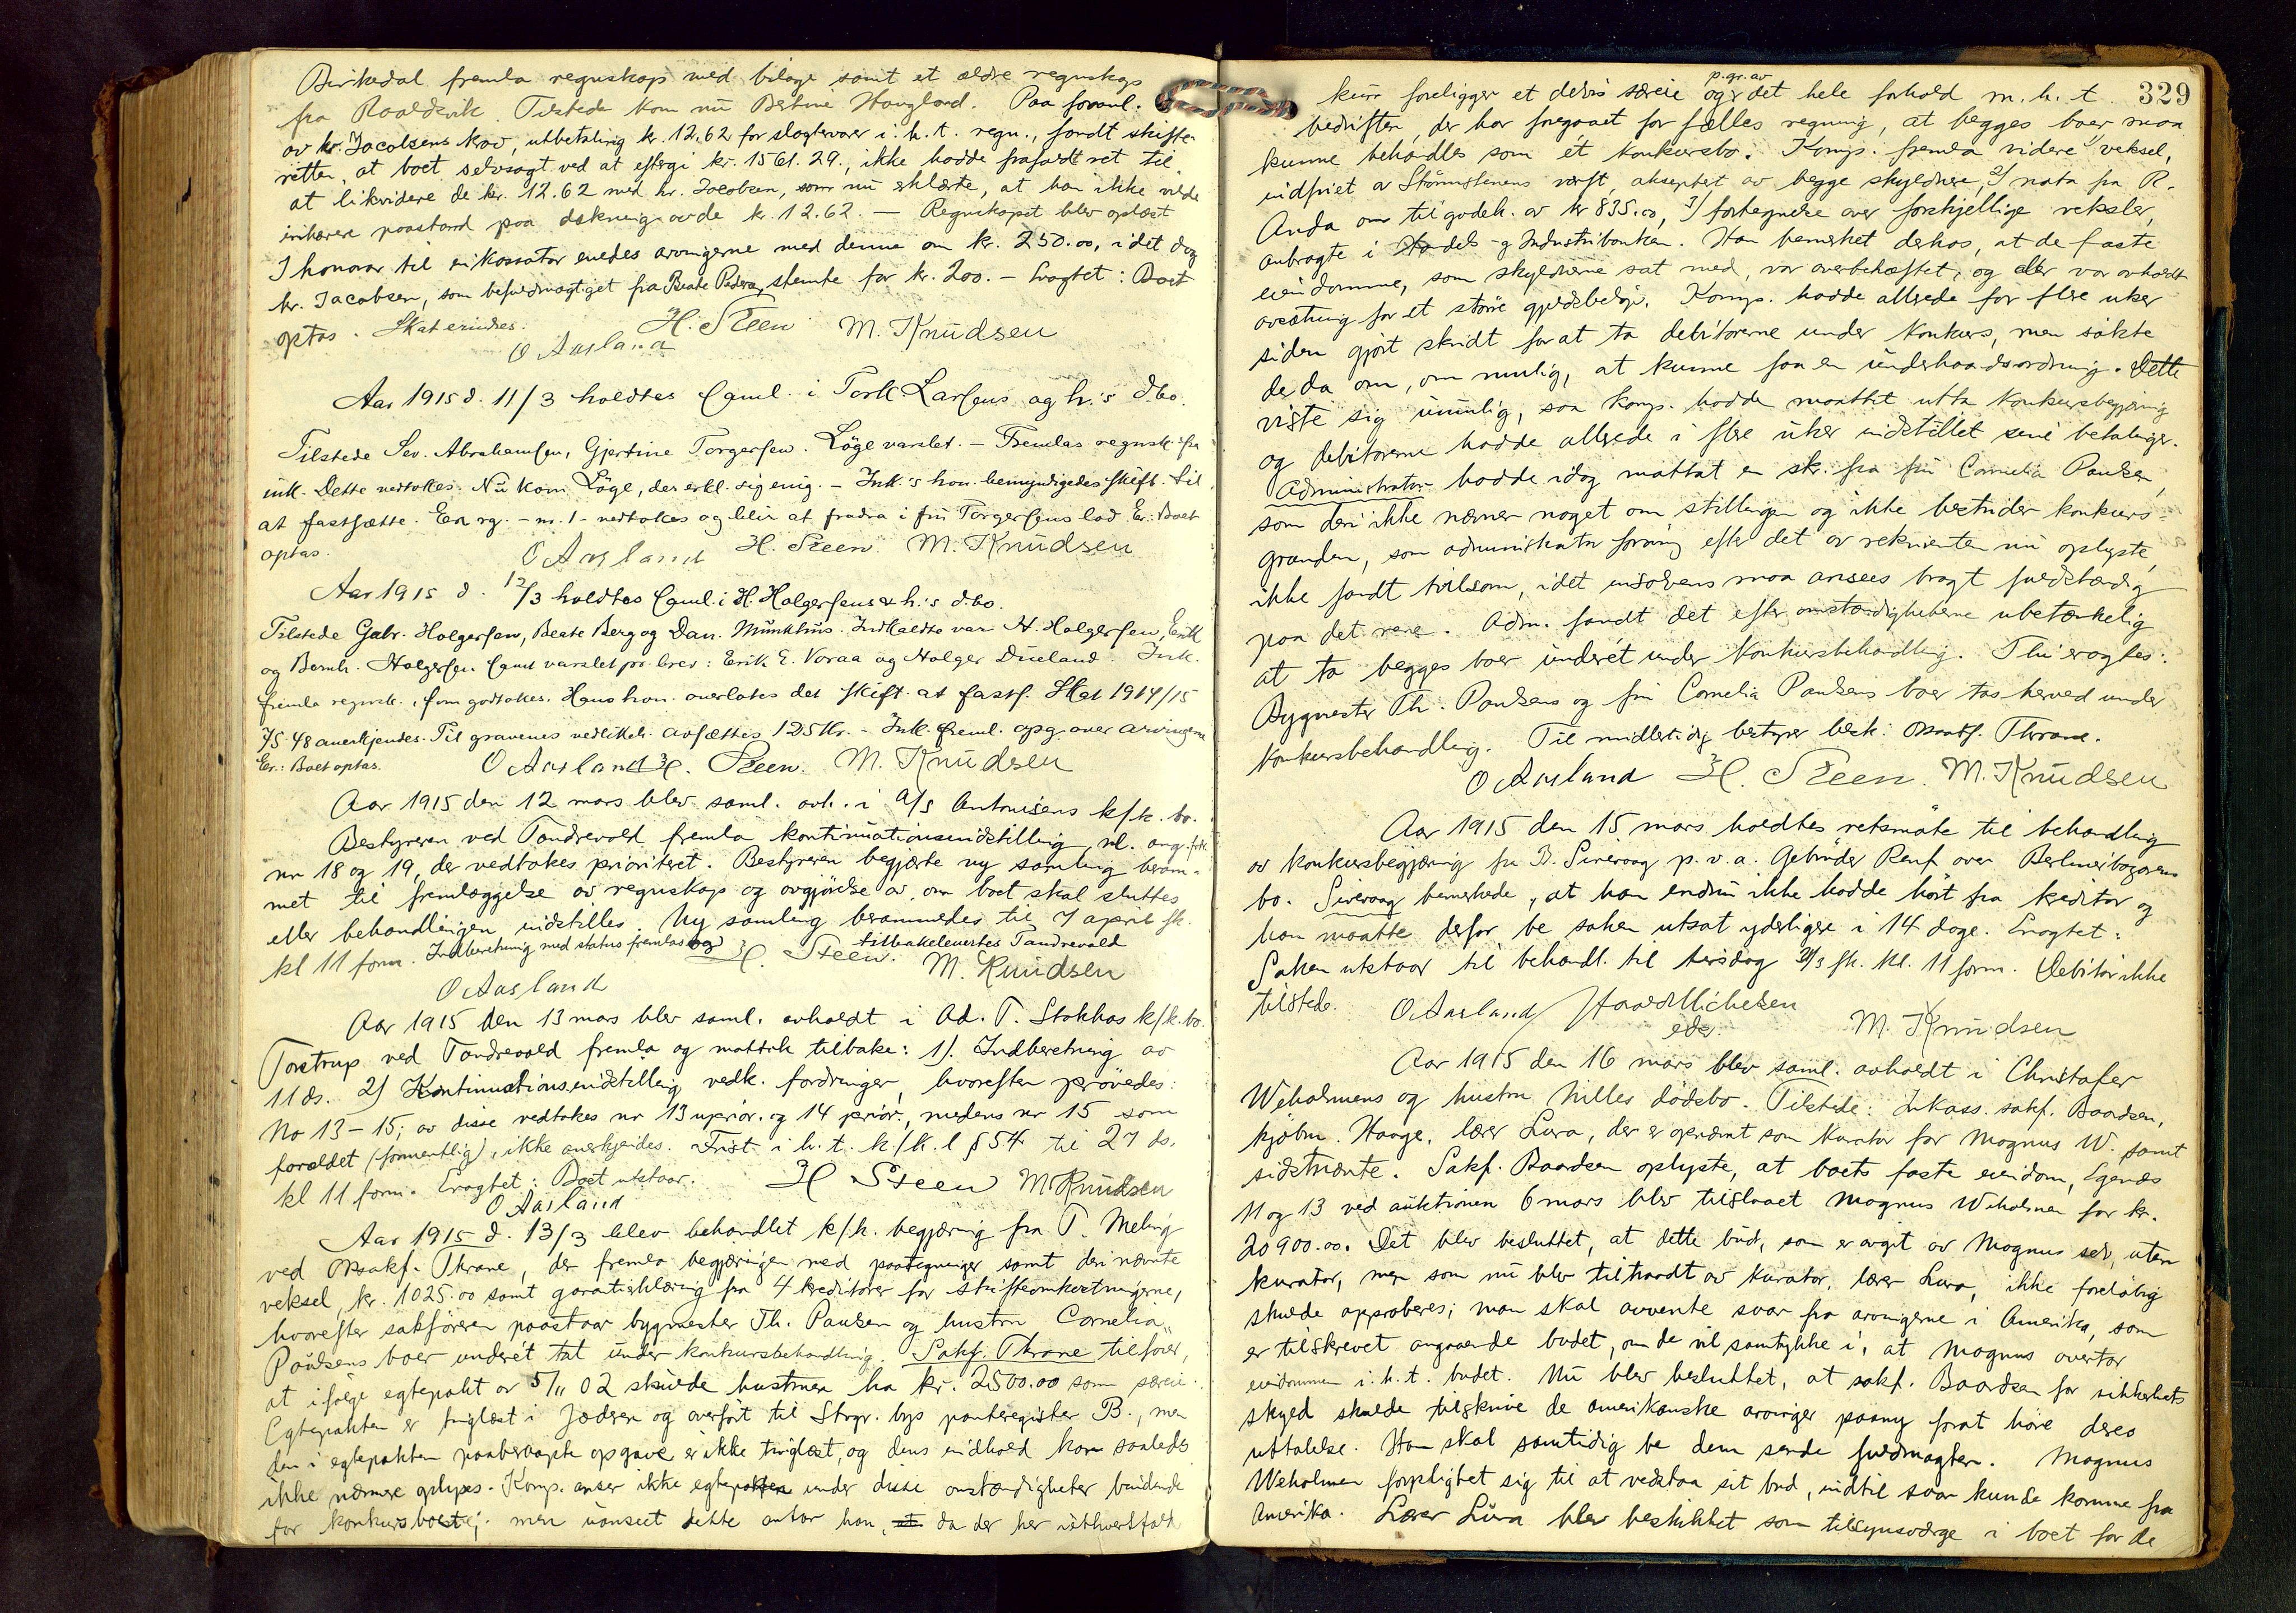 Birkedal fremla regnskap med bilage samt et ældre regnskap
fra Roaldsvik. Tilstede kom nu Bertine Haugland. Paa foranl.
av hr. Jacobsens krav, utbetaling kr. 12.62 for slagtervarer i. h. t. regn., fandt skifte-
retten, at boet selvsagt ved at eftergi kr. 1561.29, ikke hadde frafaldt ret til
at likvidere de kr. 12.62 med hr. Jacobsen, som nu erklærte, at han ikke vilde
paastand paa dækning av de kr. 12.62. — Regnskapet blev oplæst
I honorar til inkassator enedes arvingerne med denne om kr. 250.00, idet dog
hr. Jacobsen, som befuldmægtiget fra Beate Pedersen, stemte for kr. 200. – Eragtet: Boet
optas. Skat erindres. H. Steen M. Knudsen
O Aarland
Aar 1915 d. 11/3 holdtes saml. i Tork Larsens og h.'s d.bo.
Tilstede Sev. Abrahamsen, Gjertine Torgersen. Løge varslet. – Fremlas regnsk. fra
ink. Dette vedtokes. Nu kom Løge, der erkl. sig enig. – Ink.'s hon. bemyndigedes skift. til
at fastsætte. En rg. – nr. 1 – vedtokes og blir at fradra i fru Torgersens lod. Er.: Boet
optas.
O Aarland H. Steen. M. Knudsen
Aar 1915 d. 12/3 holdtes saml. i H. Holgersens & h.'s d.bo.
Tilstede Gabr. Holgersen, Beate Berg og Dan. Munkhus. Indkaldte var H. Holgersen, Erik
og Bernh. Holgersen samt varslet pr. brev: Erik E. Voraa og Holger Dueland. Ink.
fremla regnsk., som godtokes. Hans hon. overlates det skift. at fasts. Skat 1914/15
75.48 anerkjendes. Til gravenes vedlikeh. avsættes 125 kr. – Ink. freml. opg. over arvingerne
Er.: Boet optas. O Aarland H. Steen. M. Knudsen
Aar 1915 den 12 mars blev saml. avh. i A/S k/k. bo.
Bestyreren ved Tandrevold fremla kontinuationsindstilling vl. ang. ford.
nr 18 og 19, der vedtokes prioritert. Bestyreren begjærte ny samling beram-
met til fremlæggelse av regnskap og avgjørelse av, om boet skal sluttes
eller behandlingen indstilles. Ny samling berammedes til 7 april fk.
kl 11 form. Indberetning med status fremlas og tilbakelevertes Tandrevold
H. Steen. M. Knudsen
O Aarland
Aar 1915 den 13 mars blev saml. avholdt i Ad. T. Stokkas k/k. bo.
Torstrup ved Tandrevold fremla og mottok tilbake: 1). Indberetning av
11 ds. 2) Kontinuationsindstilling vedk. fordringer, hvorefter prøvedes:
No 13 – 15; av disse vedtokes nr 13 uprior. og 14 prior., medens nr 15 som
foraldet (formentlig), ikke anerkjendes. Frist i h. t. k/k. l § 54 til 27 ds.
kl 11 form. Eragtet: Boet utstaar. H Steen M Knudsen
O Aarland
Aar 1915 d. 13/3 blev behandlet k/k. begjæring fra T. Meling
ved Oksakf. Thrane, der fremla begjæringen med paategninger samt den nævnte
veksel, kr. 1025.00 samt garantierklæring fra 4 kreditorer for skifteomkostningerne,
hvorefter sakføreren paastaar bygmester Th. Paulsen og hustru Cornelia
Paulsens boer underét tat under konkursbehandling. Sakf. Thrane tilføier,
at ifølge egtepakt av 5/11 02 skulde hustruen ha kr. 2500.00 som særeie.
Egtepakten er tinglæst i Jæderen og overført til Stvgr. bys panteregister B., men
den i egtepakten paaberaapte opgave er ikke tinglæst, og dens indhold kan saaledes
ikke nærmere oplyses. Komp. anser ikke egtepakten under disse omstændigheter bindende
for konkursboet; men uanseet dette antar han, at da der her i ethvert fald
329
kun foreligger et delvis særeie og p.gr.av det hele forhold m. h. t.
bedriften, der har foregaaet for fælles regning, at begges boer maa
kunne behandles som ét konkursbo. Komp. fremla videre 1) veksel,
indfriet av Strømstenens værft, akseptert av begge skyldnere, 2) nota fra R.
Anda om tilgodeh. av kr 835.00, 3) fortegnelse over forskjellige veksler,
anbragte i Handels- og Industribanken. Han bemerket derhos, at de faste
eiendomme, som skyldnerne sat med, var overbehæftet, og der var avholdt
avsetning for et større gjeldsbeløp. Komp. hadde allerede for flere uker
siden gjort skridt for at ta debitorerne under konkurs, men søkte
de da om, om mulig, at kunne faa en underhaandsordning. Dette
viste sig umulig, saa komp. hadde maattet utta konkursbegjæring
og debitorerne hadde allerede i flere uker indstillet sine betalinger.
Administrator hadde idag mottat en skr. fra fru Cornelia Paulsen,
som deri ikke nævner noget om stillingen og ikke bestrider konkurs-
grunden, som administrator forøvrig efter det av rekvirenten nu oplyste,
ikke fandt tvilsom, idet insolvens maa ansees bragt fuldstændig
paa det rene. Adm. fandt det efter omstændigheterne ubetænkelig
at ta begges boer underét under konkursbehandling. Thi eragtes:
Bygmester Th. Paulsens og fru Cornelia Paulsens boer tas herved under
konkursbehandling. Til midlertidig bestyrer besk.: Oksakf. Thrane.
O Aarland H. Steen. M. Knudsen
Aar 1915 den 15 mars holdtes retsmøte til behandling
av konkursbegjæring fra B. Sivevaag p. v. a. Gebrüder Renf over Berlinerbazarens
bo. Sivevaag bemerkede, at han endnu ikke hadde hørt fra kreditor og
han maatte derfor be saken utsat yderligere i 14 dage. Eragtet:
Saken utstaar til behandl. til tirsdag 30/3 fk. kl. 11 form. Debitor ikke
tilstede. O Aarland Harald Michelsen M. Knudsen
eds.
Aar 1915 den 16 mars blev saml. avholdt i Christofer
Weholmens og hustru Nilles dødsbo. Tilstede: Inkass. sakf. Baardsen,
kjøbm. Haage, lærer Lura, der er opnævnt som kurator for Magnus W. samt
sidstnævnte. Sakf. Baardsen oplyste, at boets faste eiendom, Egenæs
11 og 13 ved auktionen 6 mars blev tilslaaet Magnus Weholmen for kr.
20900.00. Det blev besluttet, at dette bud, som er avgit av Magnus selv, uten
kurator, men som nu blev tiltraadt av kurator, lærer Lura, ikke foreløbig
skulde approberes; man skal avvente svar fra arvingerne i Amerika, som
er tilskrevet angaaende budet, om de vil samtykke i, at Magnus overtar
eiendommen i. h. t. budet. Nu blev besluttet, at sakf. Baardsen for sikkerhets
skyld skulde tilskrive de amerikanske arvinger paany forat høre deres
uttalelse. Han skal samtidig be dem sende fuldmagter. Magnus
Weholmen forpligtet sig til at vedstaa sit bud, indtil svar kunde komme fra
Amerika. Lærer Lura blev beskikket som tilsynsværge i boet for de